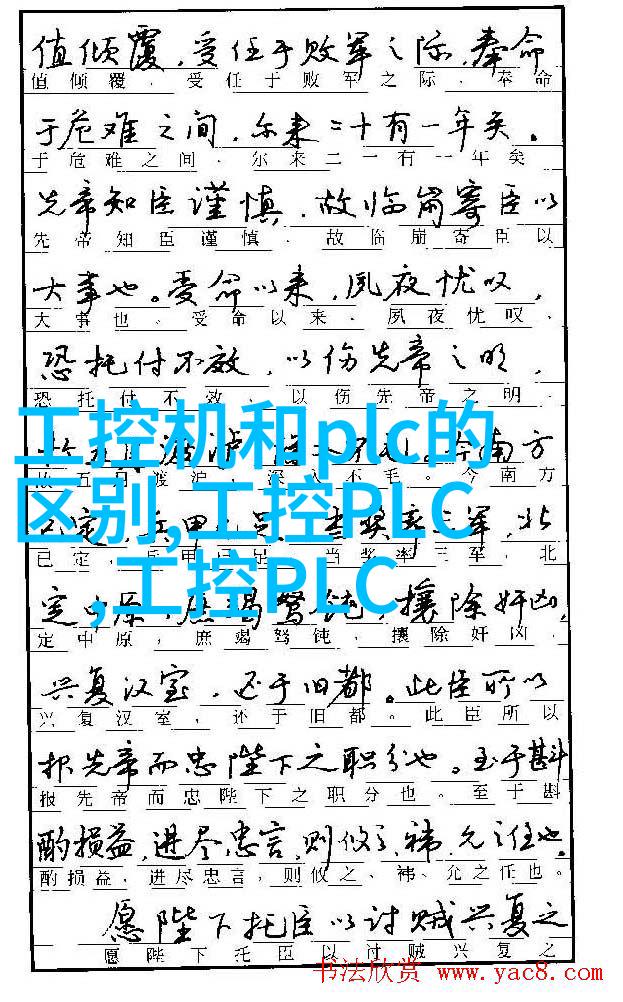 值倾覆，受任于败军之际，奉命
值倾覆，受任于败军之际，奉命
于危难之间，尔来二十有一年矣。
于危难之间，尔来二一有一年矣
先帝知臣谨慎，故临崩寄臣以
先帝知臣谨慎，故临崩寄臣以
大事也。受命以来，夙夜忧叹，
大事也。受命以来，夙夜忧叹，
恐托付不效，以伤先帝之明，
恐托付不效，以伤先帝之明，
工控机和plc的
五月渡泸，深入不毛。今南方
区别,工控PLC
已定，兵甲已足，当奖率三军，北
已定，兵甲已足，当奖率三军，北
,工控PLC
定中原，庶竭驽钝，攘除奸凶，
定中原，庶竭驽钝，攘除奸凶，
兴复汉室，还于旧都。此臣所以
兴复汉室，还于旧都。此臣所以
报先帝而忠陛下之职分也。至于斟
报先帝而忠陛下之职分也。至于斟
酌损益，进尽忠言，则攸之、祎、允之任也。
酌损益，进尽忠言，则攸之、祎、允之任也。
愿陛下托臣以讨贼兴复之
愿陛下托臣以讨贼兴复之
书法欣赏 www.yac8.com